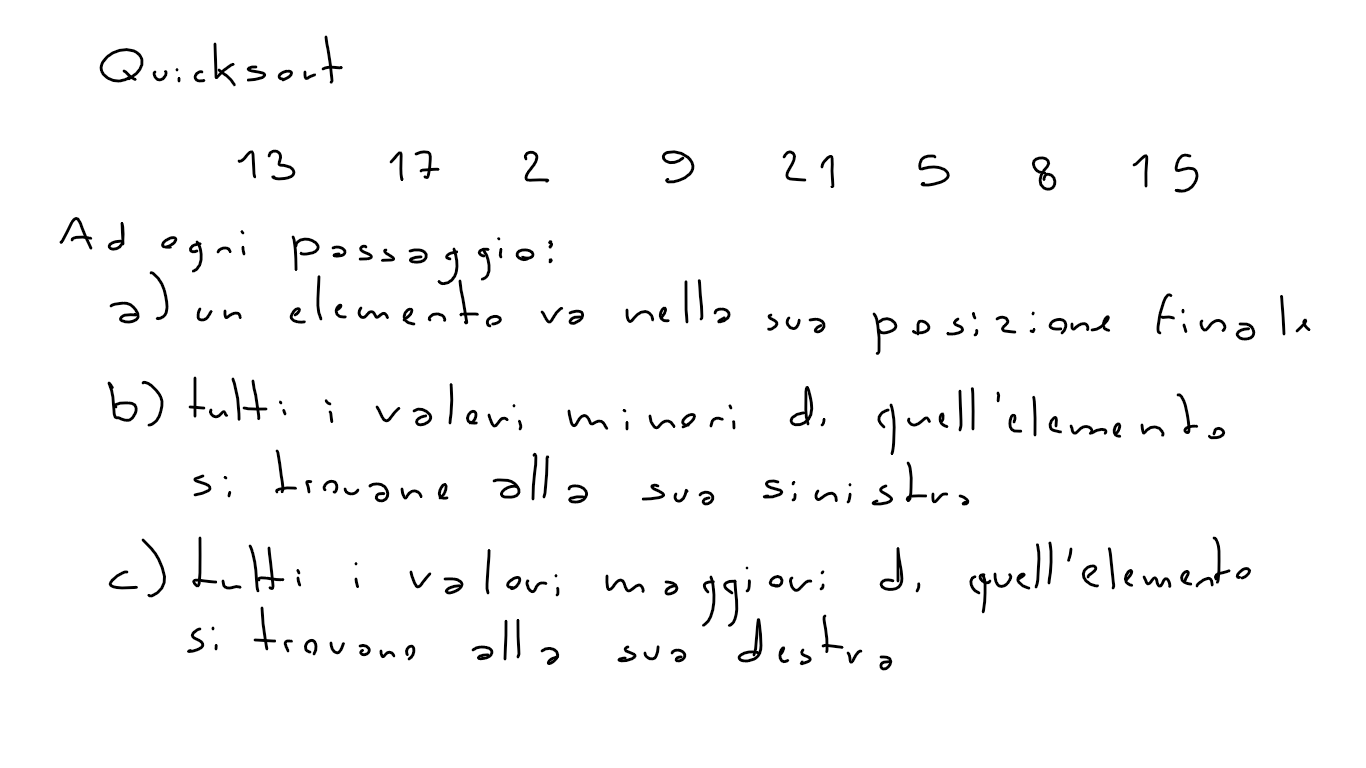 Quicksort
13 17 2 9 21 5 8 15
Ad ogni passaggio:
a) un elemento va nella sua posizione finale
b) tutti i valori minori di quell'elemento
si trovano alla sua sinistra
c) tutti i valori maggiori di quell'elemento
si trovano alla sua destra